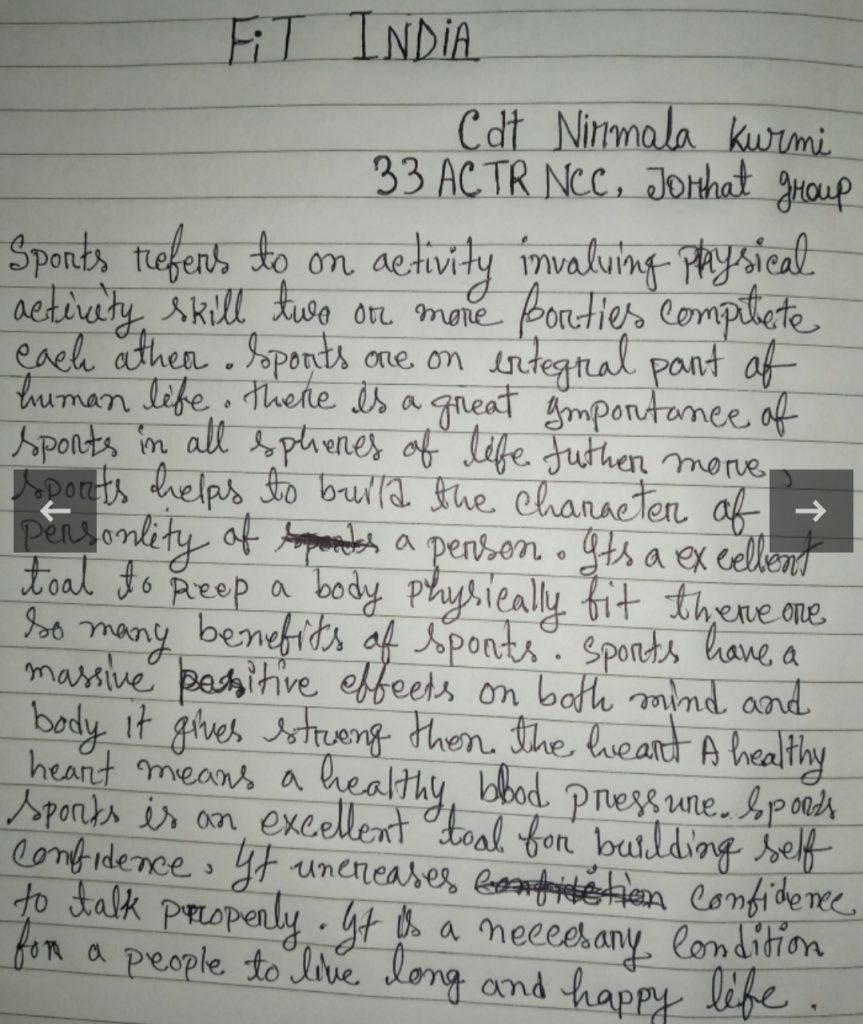 FiT INDiA
Cdt Nirmala Kurmi
33 ACTR NCC, Jorhat group
Sports refers to on activity involuing physical
activity skill two or more porties compitete
each ather. Sports are on integral part af
human life. there is a great ymportance of
sports in all spheres of life futher more,
sports helps to build the character af
personlity of a person. Yts a excellent
toal to Keep a body physically fit there are
so many benefits of sports. Sports have a
massive positive effects on both mind and
body it gives streng then the heart A healthy
heart means a healthy blood pressure. Sports
Sports is an excellent toal for building self
Confidence, Yt uncreases Confidence
to talk properly. Yt is a neccesary Condition
for a people to live long and happy life.